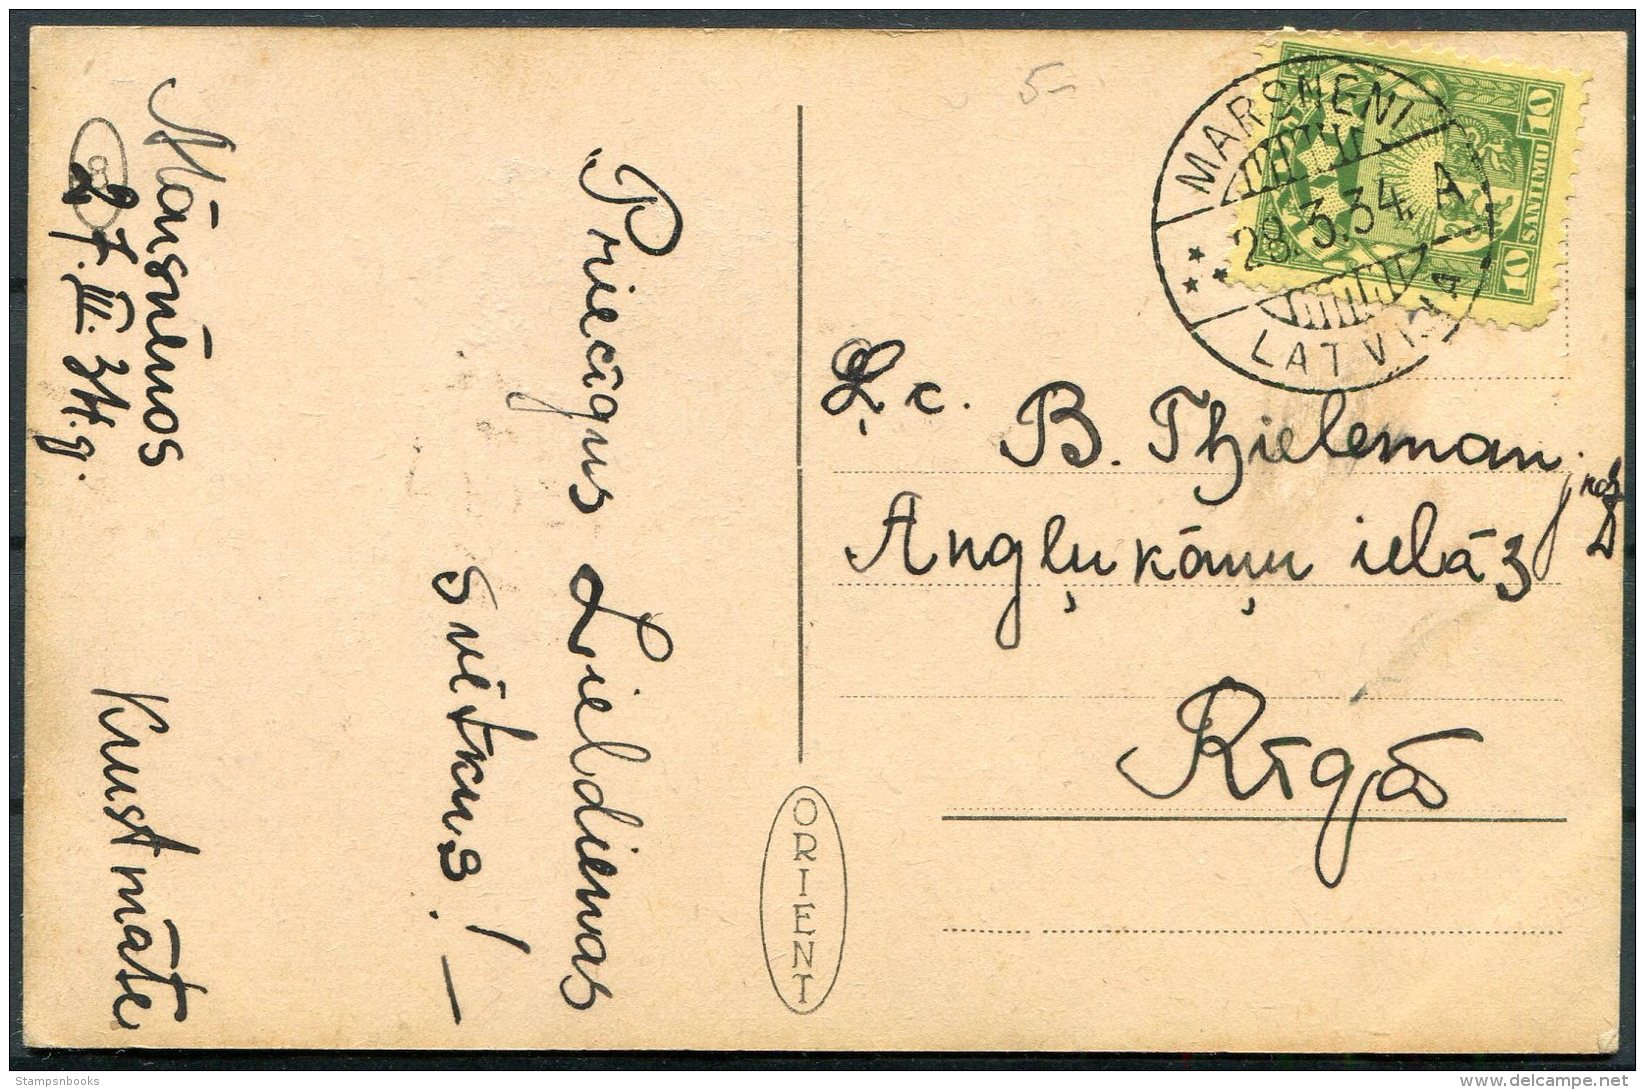 Mārsnēnos
27. III. 34. g.
Priecīgus Lieldienas
svētkus! —
Krustmāte
5-
MARSNENI
28.3.34. A
LATVIJA
10 SANTIMU 10
Ļ. c. B. Thieleman
Angļu kāņu ielā 3
Rīgā
ORIENT
8
Stampsnbooks
delcampe.net